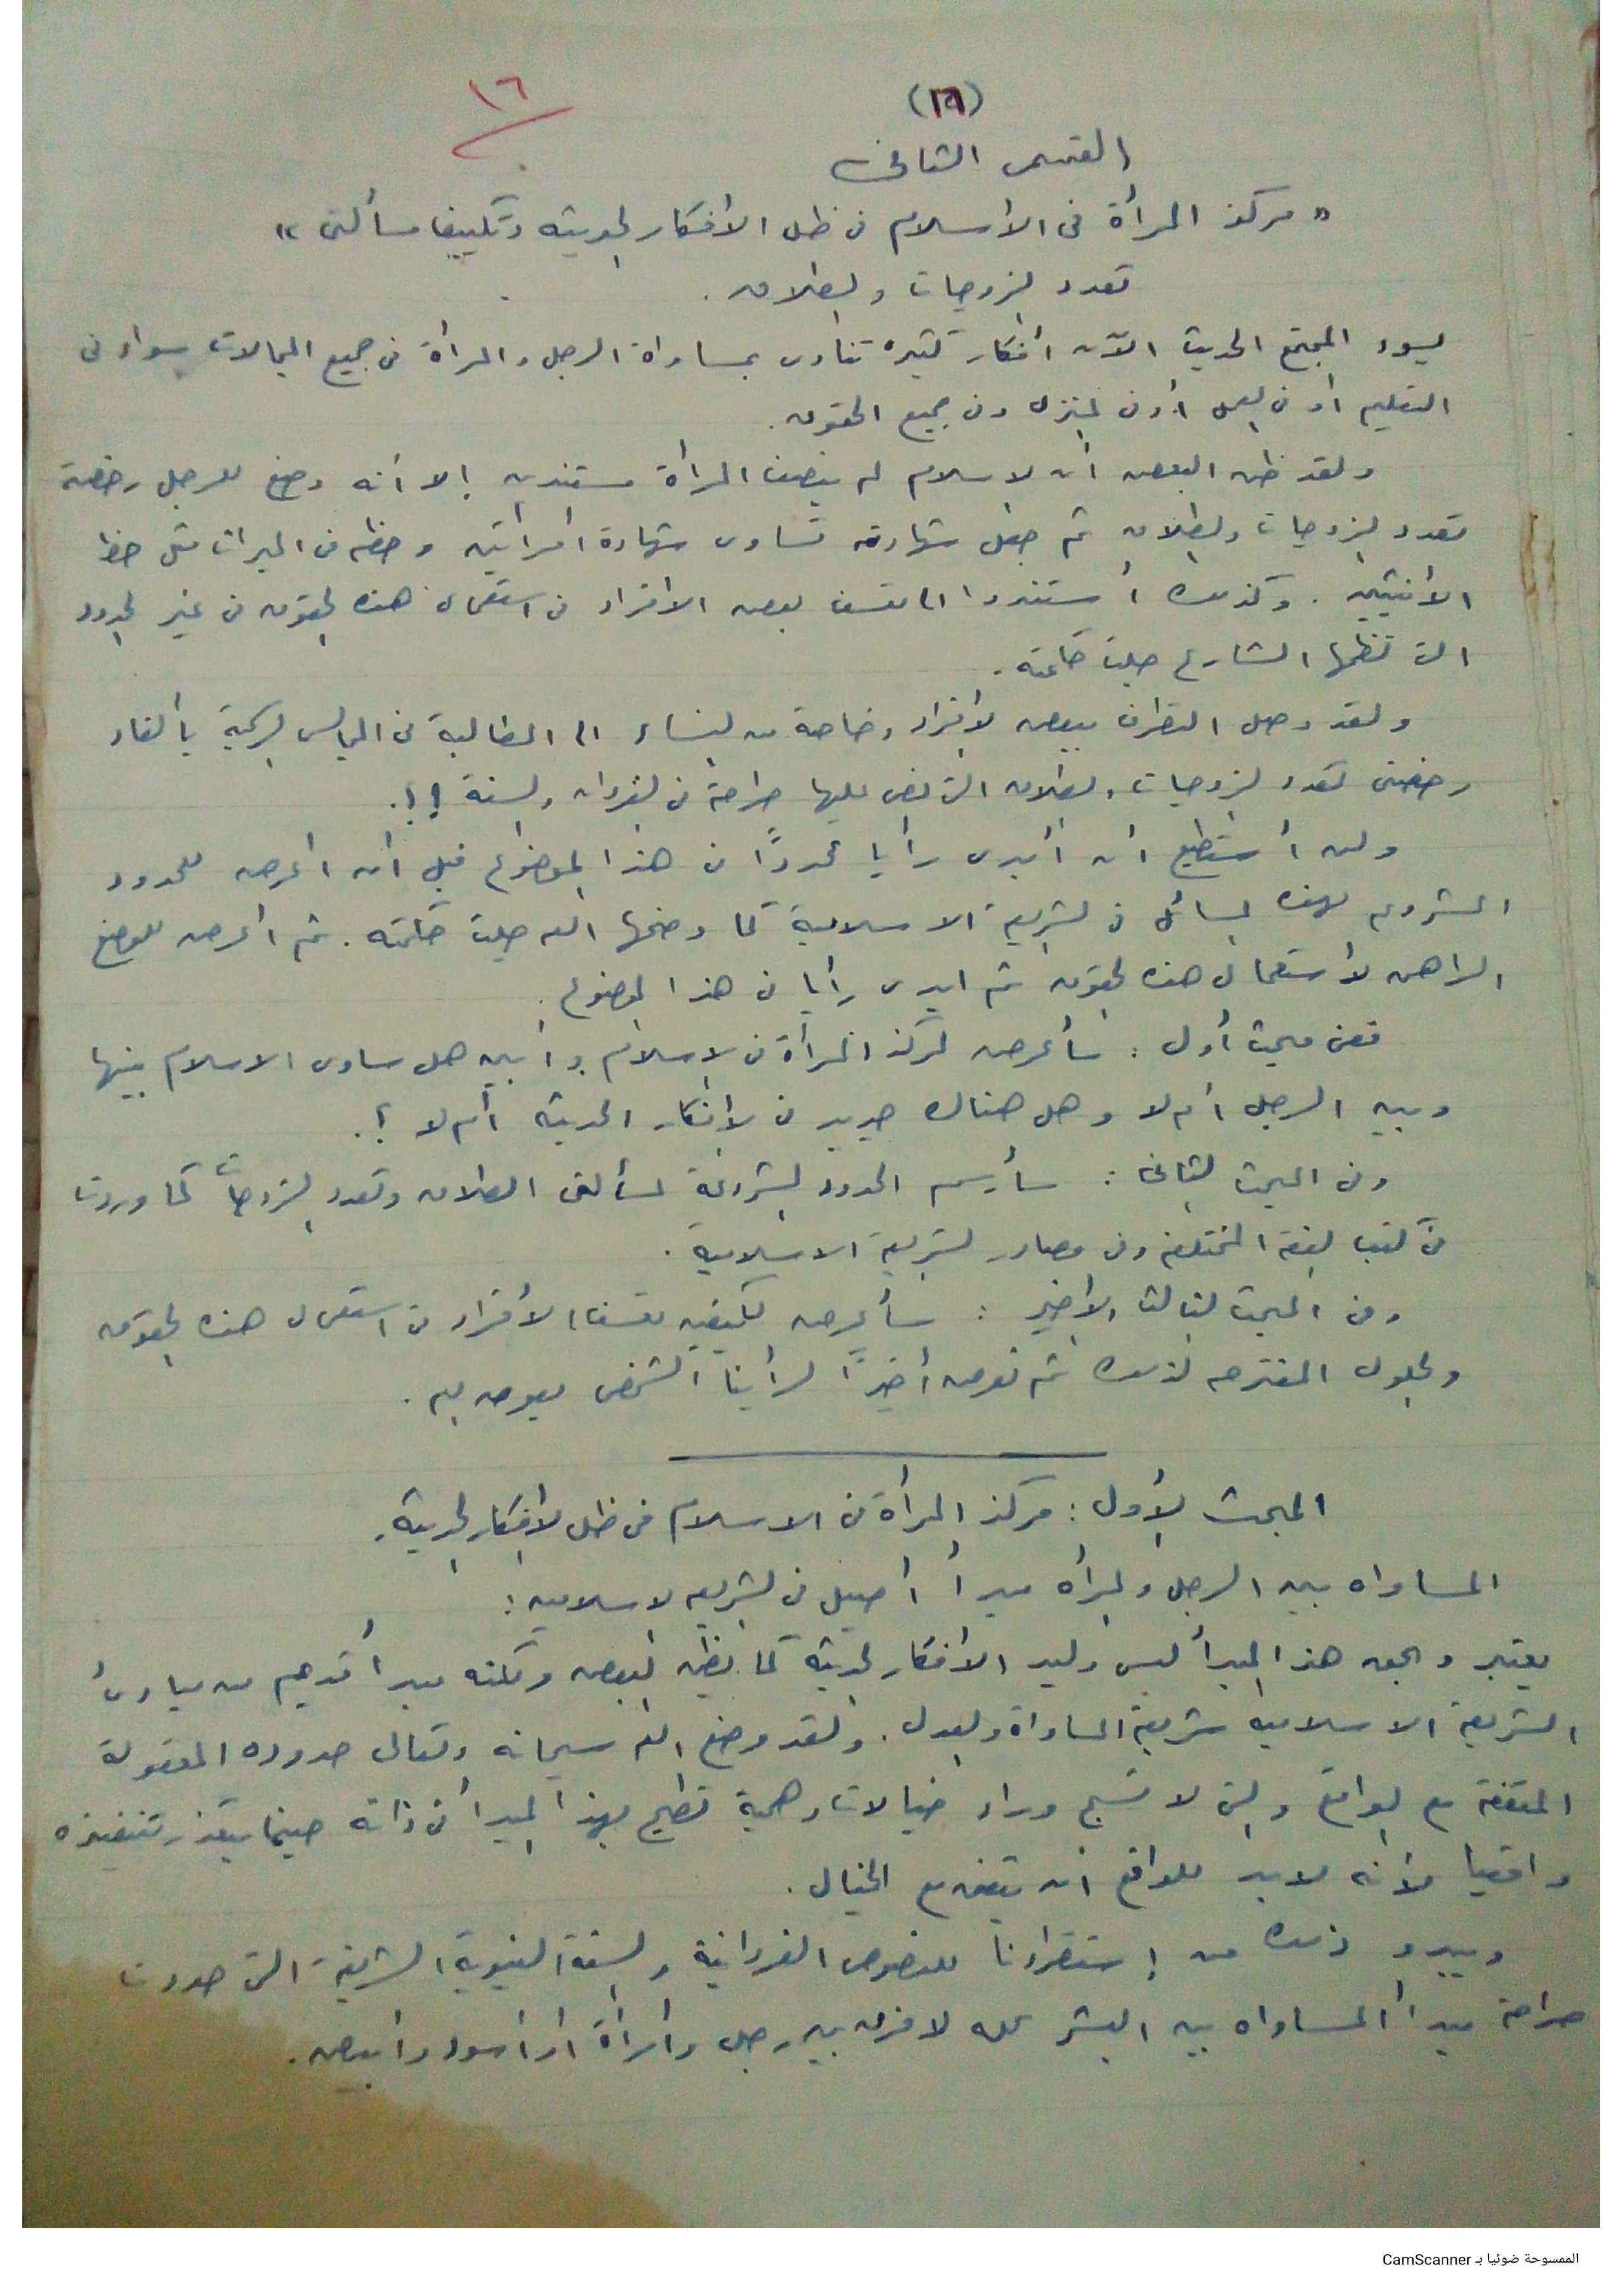 ١٦
(١٦)
القسم الثانى
" مركز المرأة فى الاسلام فى ظل الأفكار الحديثه وتكييف مسألتى "
تعدد الزوجات والطلاق .
يسود المجتمع الحديث الآن أفكار كثيره تنادى بمساواة الرجل والمرأة فى جميع المجالات سواء فى
التعليم أو فى العمل أو فى المنزل وفى جميع الحقوق .
ولقد ظن البعض أن الاسلام لم ينصف المرأة مستندين إلا أنه وضع للرجل رخصة
تعدد الزوجات والطلاق ثم جعل شهادته تساوى شهادة امرأتين وحظه فى الميراث مثل حظ
الأنثيين . وكذلك أستندوا الى تعسف بعض الافراد فى استعمال هذه الحقوق فى غير الحدود
التى نظمها الشارع جلت حكمته .
ولقد وصل التطرف ببعض الأفراد وخاصة من النساء الى المطالبة فى المجالس بألغاء
رخصتى تعدد الزوجات والطلاق التى نص عليها صراحة فى القرآن والسنة !! .
ولن أستطيع أن أبدى رأيا محددًا فى هذا الموضوع قبل أن أعرض للحدود
المشروعه لهذه المسائل فى الشريعة الاسلامية كما وضحها الله جلت حكمته . ثم أعرض للوضع
الراهن لأستعمال هذه الحقوق ثم ابدى رأيا فى هذا الموضوع .
ففى مبحث أول : سأعرض لمركز المرأة فى الاسلام وأبين هل ساوى الاسلام بينها
وبين الرجل أم لا وهل هناك جديد فى الأفكار الحديثة أم لا ؟ .
وفى المبحث الثانى : سأرسم الحدود المشروعة لمسألتى الطلاق وتعدد الزوجات كما وردت
فى كتب الفقه المختلفه وفى مصادر الشريعة الاسلامية .
وفى المبحث الثالث والأخير : سأعرض لكيفيه تعسف الأفراد فى استعمال هذه الحقوق
والحلول المقترحه لذلك ثم نعرض أخيرًا لرأينا الشخصى بعون الله .
المبحث الأول : مركز المرأة فى الاسلام فى ظل الأفكار الحديثة .
المساواه بين الرجل والمرأه مبدأ أصيل فى الشريعه الاسلاميه :
يعتبر وبحق هذا المبدأ ليس وليد الأفكار الحديثة كما يظن البعض ولكنه مبدأ قديم من مبادئ
الشريعة الاسلاميه شريعة المساواة والعدل . ولقد وضع الله سبحانه وتعالى حدوده المعقولة
المتفقة مع الواقع والتى لا تسبح وراء خيالات وهمية تطيح بهذا المبدأ فى ذاته حينما يتعذر تنفيذه
واقعيا لأنه لابد للواقع أن يتفق مع الخيال .
ويبدو ذلك من إستقراءنا للنصوص القرآنية والسنة النبوية الشريفة التى حددت
صراحة مبدأ المساواه بين البشر كله لا فرق بين رجل وأمرأة أو أسود وأبيض .
الممسوحة ضوئيا بـ CamScanner